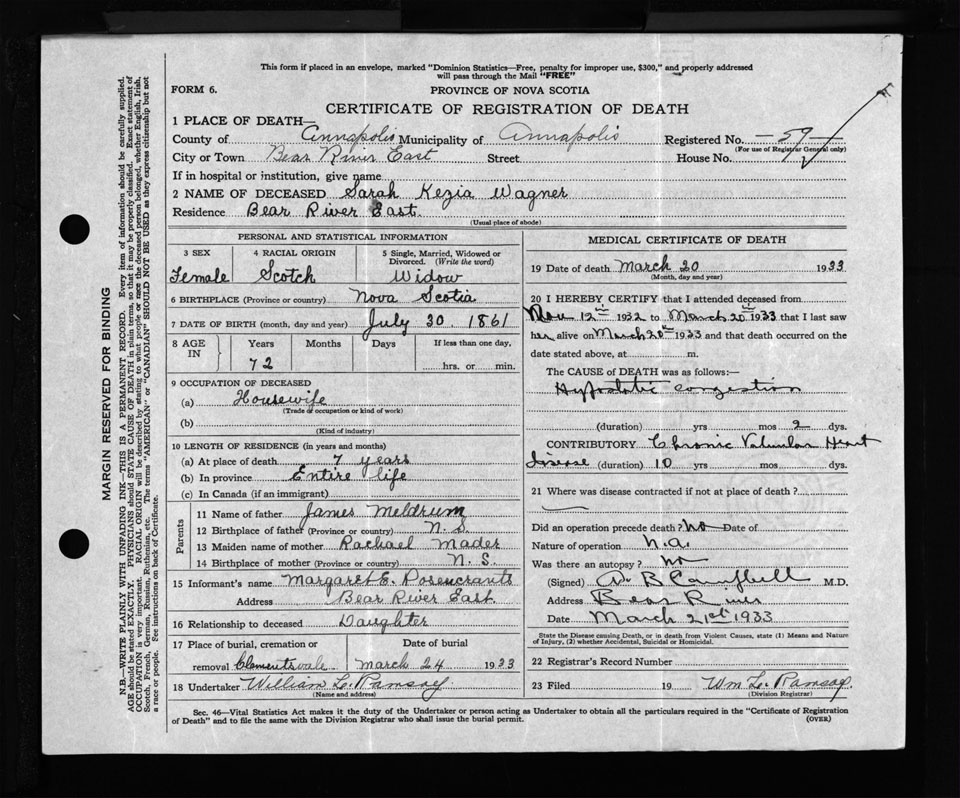 This form if placed in an envelope, marked "Dominion Statistics—Free, penalty for improper use, $300," and properly addressed
will pass through the Mail "FREE"
FORM 6.
PROVINCE OF NOVA SCOTIA
CERTIFICATE OF REGISTRATION OF DEATH
1 PLACE OF DEATH—
County of Annapolis Municipality of Annapolis Registered No. — 59 —
(For use of Registrar General only)
City or Town Bear River East Street House No.
If in hospital or institution, give name
2 NAME OF DECEASED Sarah Kezia Wagner
Residence Bear River East.
(Usual place of abode)
PERSONAL AND STATISTICAL INFORMATION
3 SEX 4 RACIAL ORIGIN 5 Single, Married, Widowed or
Divorced. (Write the word)
Female Scotch Widow
6 BIRTHPLACE (Province or country) Nova Scotia
7 DATE OF BIRTH (month, day and year) July 30. 1861
8 AGE IN Years Months Days If less than one day,
72 hrs. or min.
9 OCCUPATION OF DECEASED
(a) Housewife
(Trade or occupation or kind of work)
(b)
(Kind of industry)
10 LENGTH OF RESIDENCE (in years and months)
(a) At place of death 7 years
(b) In province Entire life
(c) In Canada (if an immigrant)
Parents
11 Name of father James Meldrum
12 Birthplace of father (Province or country) N. S.
13 Maiden name of mother Rachael Mader
14 Birthplace of mother (Province or country) N. S.
15 Informant's name Margaret E. Rosencrants
Address Bear River East.
16 Relationship to deceased Daughter
17 Place of burial, cremation or Date of burial
removal Clementsvale March 24 1933
18 Undertaker William L. Ramsay
(Name and address)
MEDICAL CERTIFICATE OF DEATH
19 Date of death March 20 1933
(Month, day and year)
20 I HEREBY CERTIFY that I attended deceased from
Nov 12th 1932 to March 20th 1933 that I last saw
her alive on March 20th 1933 and that death occurred on the
date stated above, at m.
The CAUSE of DEATH was as follows:—
Hypostatic congestion
(duration) yrs mos 2 dys.
CONTRIBUTORY Chronic Valvular Heart
disease (duration) 10 yrs mos dys.
21 Where was disease contracted if not at place of death?
Did an operation precede death? no Date of
Nature of operation n.a.
Was there an autopsy? no
(Signed) W. B Campbell M.D.
Address Bear River
Date March 21st 1933
State the Disease causing Death, or in death from Violent Causes, state (1) Means and Nature
of Injury, (2) whether Accidental, Suicidal or Homicidal.
22 Registrar's Record Number
23 Filed 19 Wm L. Ramsay.
(Division Registrar)
Sec. 46—Vital Statistics Act makes it the duty of the Undertaker or person acting as Undertaker to obtain all the particulars required in the "Certificate of Registration
of Death" and to file the same with the Division Registrar who shall issue the burial permit.
(OVER)
MARGIN RESERVED FOR BINDING
N.B.—WRITE PLAINLY WITH UNFADING INK—THIS IS A PERMANENT RECORD. Every item of information should be carefully supplied.
AGE should be stated EXACTLY. PHYSICIANS should STATE CAUSE OF DEATH in plain terms, so that it may be properly classified. Exact statement of
OCCUPATION is very important. RACIAL ORIGIN will be described by stating to what people or race the deceased person belonged, whether English, Irish,
Scotch, French, German, Russian, Ruthenian, etc. The terms "AMERICAN" or "CANADIAN" SHOULD NOT BE USED as they express citizenship but not
a race or people. See instructions on back of Certificate.